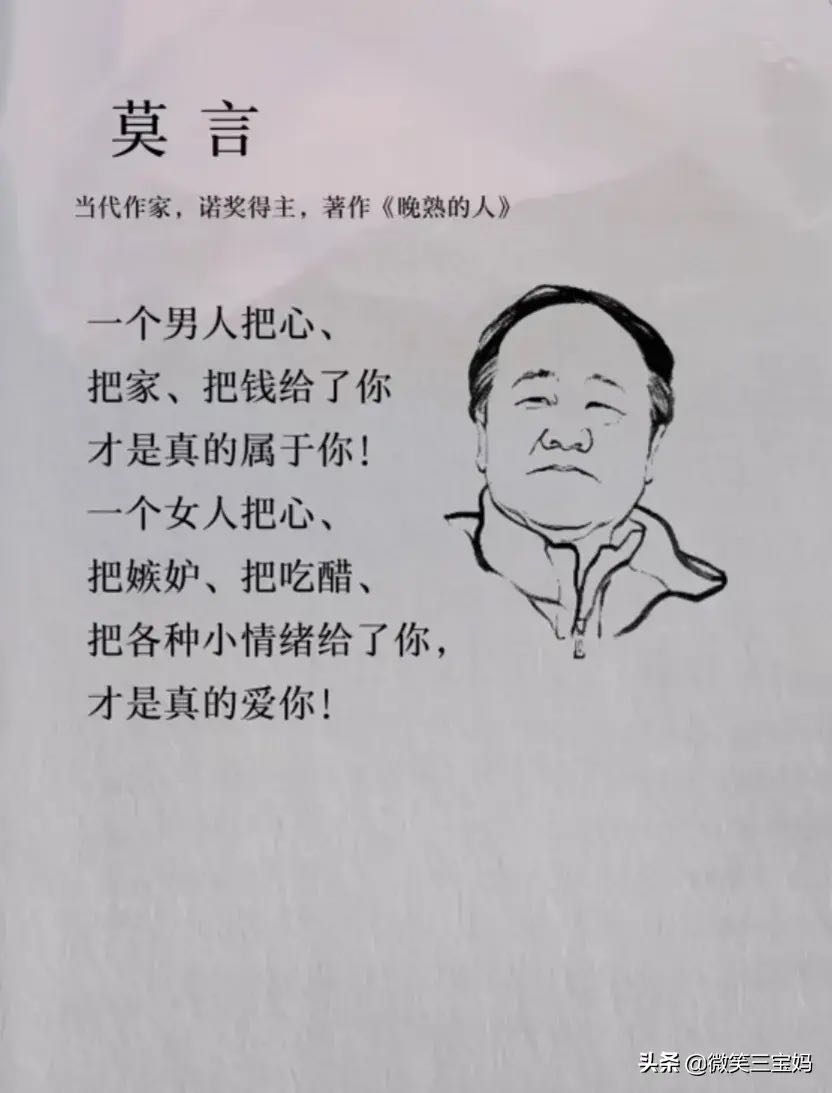 莫言
当代作家，诺奖得主，著作《晚熟的人》
一个男人把心、
把家、把钱给了你
才是真的属于你！
一个女人把心、
把嫉妒、把吃醋、
把各种小情绪给了你，
才是真的爱你！
头条 @微笑三宝妈